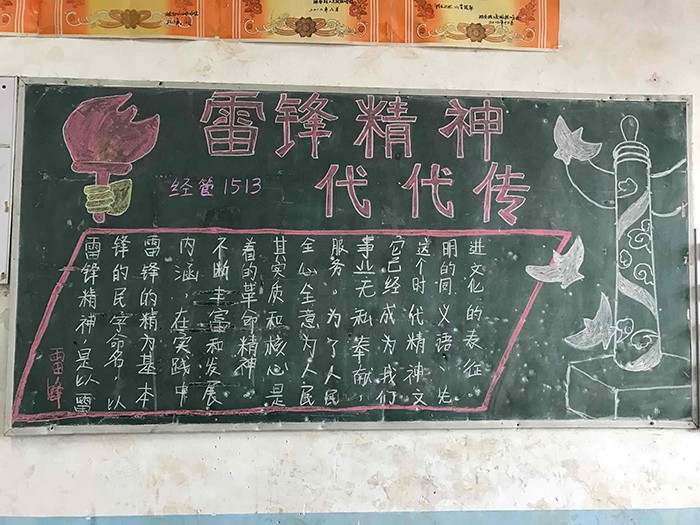 雷锋精神
代代传
经管1513
雷锋精神,是以雷
锋的民字命名,以
雷锋的精为基本
内涵,在实践中
不断丰富和发展
着的革命精神
其实质和核心是
全心全意为人民
服务。为了人民
事业无私奉献,
它已经成为我们
这个时代精神文
明的同义语、先
进文化的表征.
雷锋